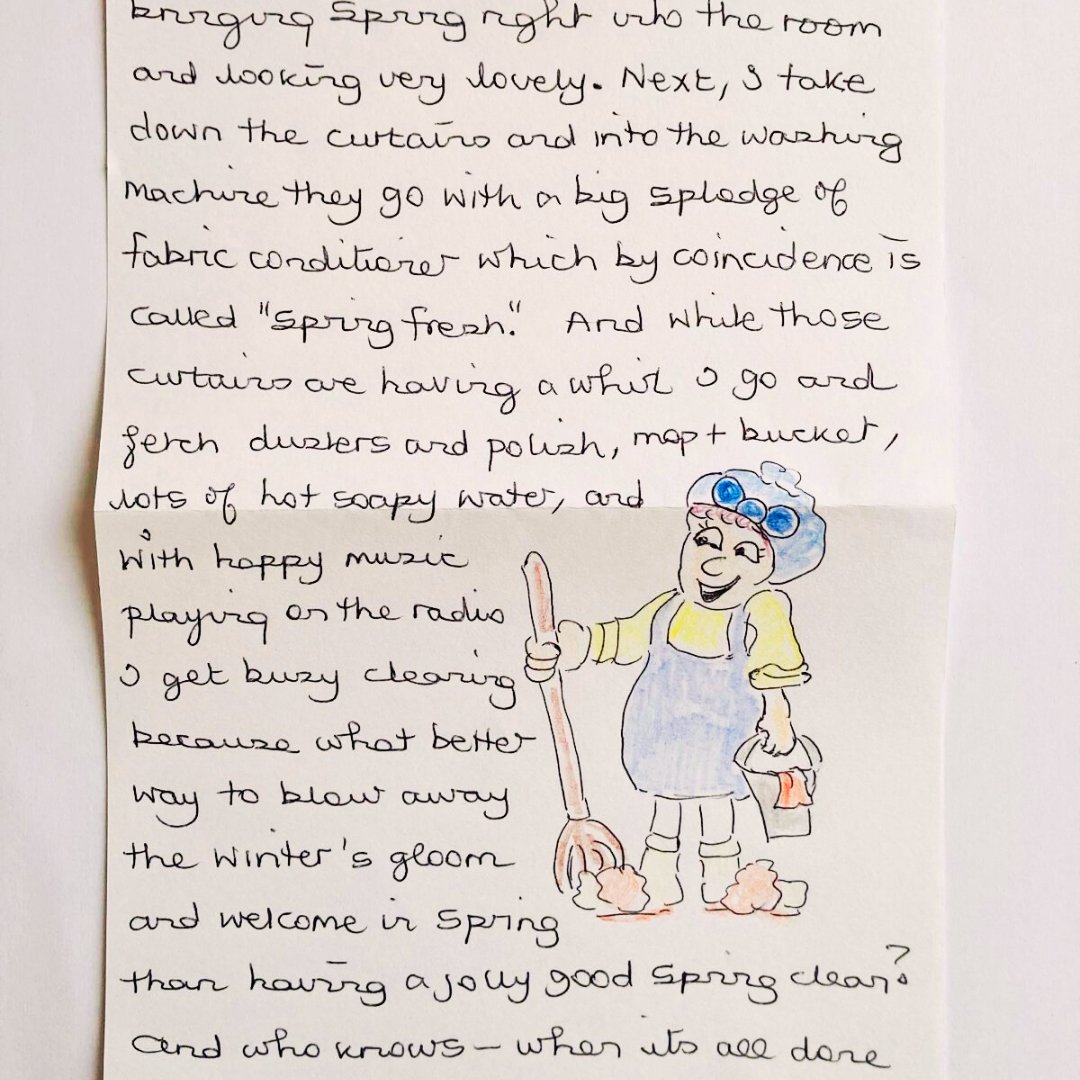 bringing Spring right into the room
and looking very lovely. Next, I take
down the curtains and into the washing
machine they go with a big splodge of
fabric conditioner which by coincidence is
called "Spring fresh." And while those
curtains are having a whirl I go and
fetch dusters and polish, mop + bucket,
lots of hot soapy water, and
with happy music
playing on the radio
I get busy cleaning
because what better
way to blow away
the winter's gloom
and welcome in Spring
than having a jolly good Spring clean?
And who knows – when its all done